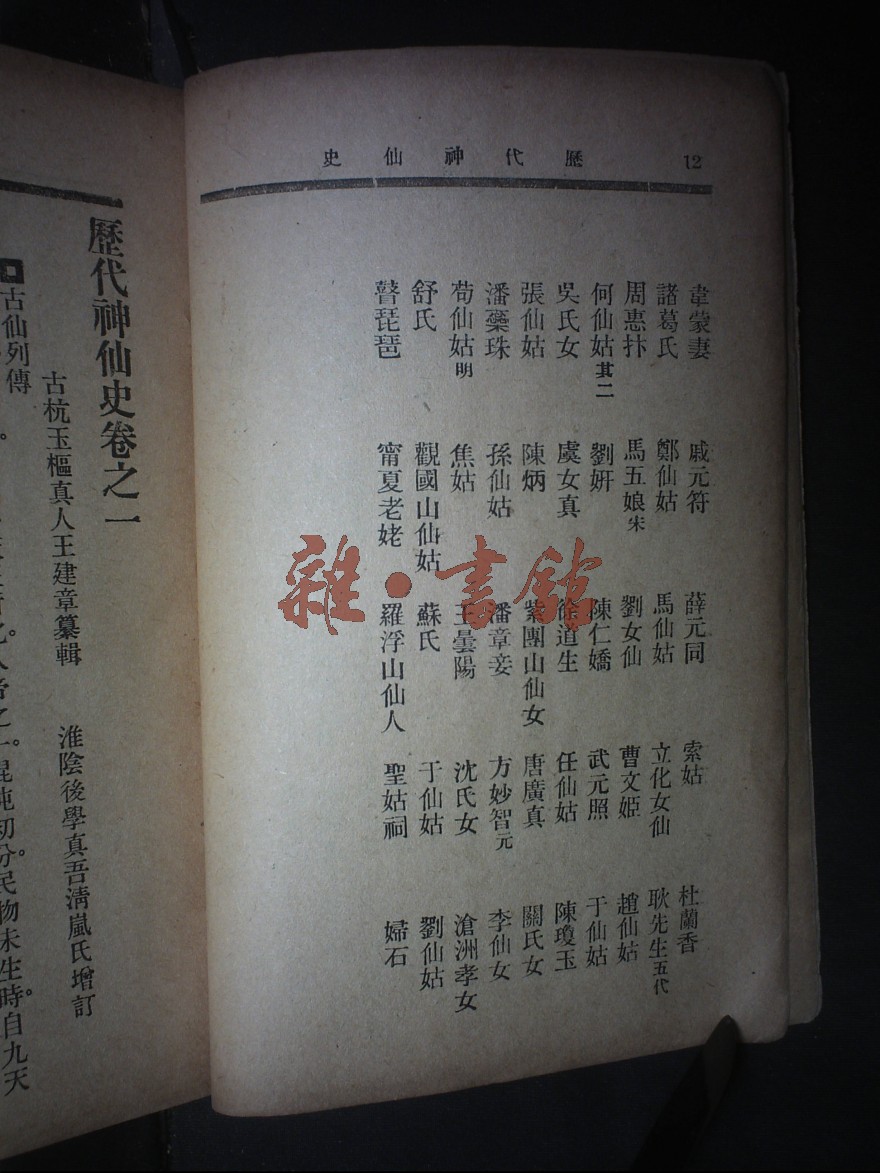 歷代神仙史 12
韋蒙妻 戚元符 薛元同 索姑 杜蘭香
諸葛氏 鄭仙姑 馬仙姑 立化女仙 耿先生五代
周惠抃 馬五娘宋 劉女仙 曹文姬 趙仙姑
何仙姑其二 劉妍 陳仁嬌 武元照 于仙姑
吳氏女 虞女真 徐道生 任仙姑 陳瓊玉
張仙姑 陳炳 紫團山仙女 唐廣真 關氏女
潘藥珠 孫仙姑 潘章妾 方妙智元 李仙女
荀仙姑明 焦姑 王曇陽 沈氏女 滄洲孝女
舒氏 觀國山仙姑 蘇氏 于仙姑 劉仙姑
瞽琵琶 甯夏老姥 羅浮山仙人 聖姑祠 婦石
雜·書館
歷代神仙史卷之一
古杭玉樞真人王建章纂輯 淮陰後學真吾清嵐氏增訂
古仙列傳
混沌初分。民物未生。時自九天